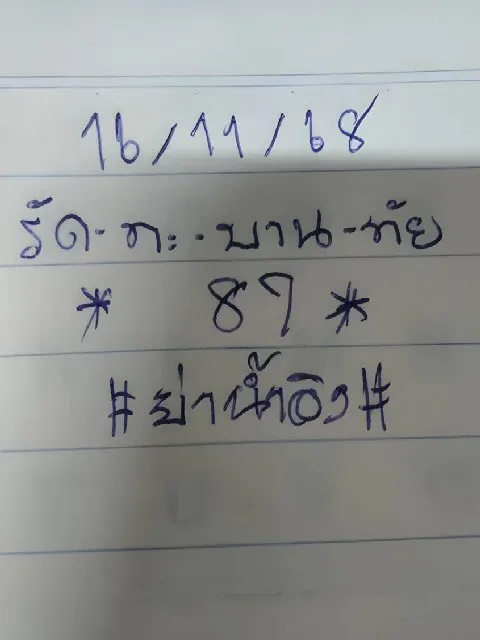 16/11/68
รัด-ทะ-บาน-ทัย
* 87 *
#ย่าน้ำอิง#